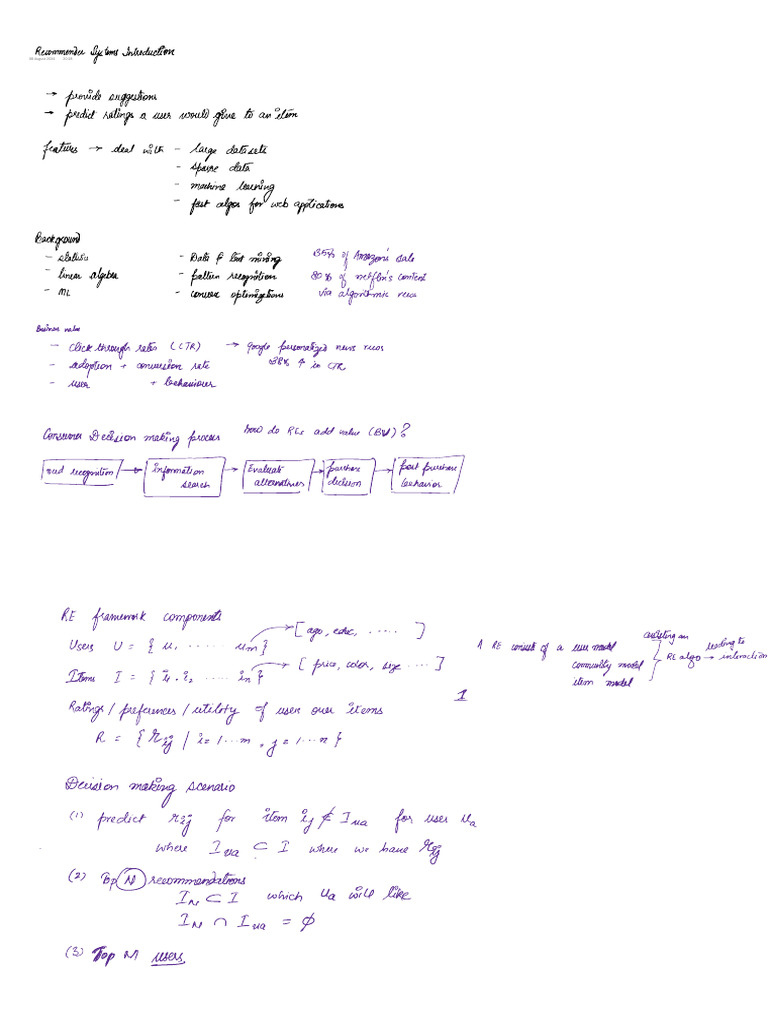 Recommender Systems Introduction
→ provide suggestions
→ predict ratings a user would give to an item
features → deal with - large datasets
- sparse data
- machine learning
- fast algos for web applications
Background
- statistics - Data & text mining 35% of Amazon's sale
- linear algebra - pattern recognition 80% of netflix's content
- ML - convex optimizations via algorithmic recos
Business value
- click through rates (CTR) → google personalized news recos
- adoption + conversion rate 38% ↑ in CTR
- user + behaviours
Consumer Decision making process how do REs add value (BV)?
need recognition → information search → Evaluate alternatives → purchase decision → post purchase behavior
RE framework components
Users U = { u, ...... um} → [ age, educ, ..... ]
Items I = { i1, i2, ..... in} → [ price, color, size .... ]
A RE consist of a user model
community model
item model
RE algo → leading to interaction
1
Ratings / preferences / utility of user over items
R = { rij / i = 1 ... m, j = 1 ... n }
Decision making scenario
(1) predict rij for item ij ∉ Iua for user ua
where Iua ⊂ I where we have rij
(2) Top N recommendations
IN ⊂ I which ua will like
IN ∩ Iua = ∅
(3) Top M users